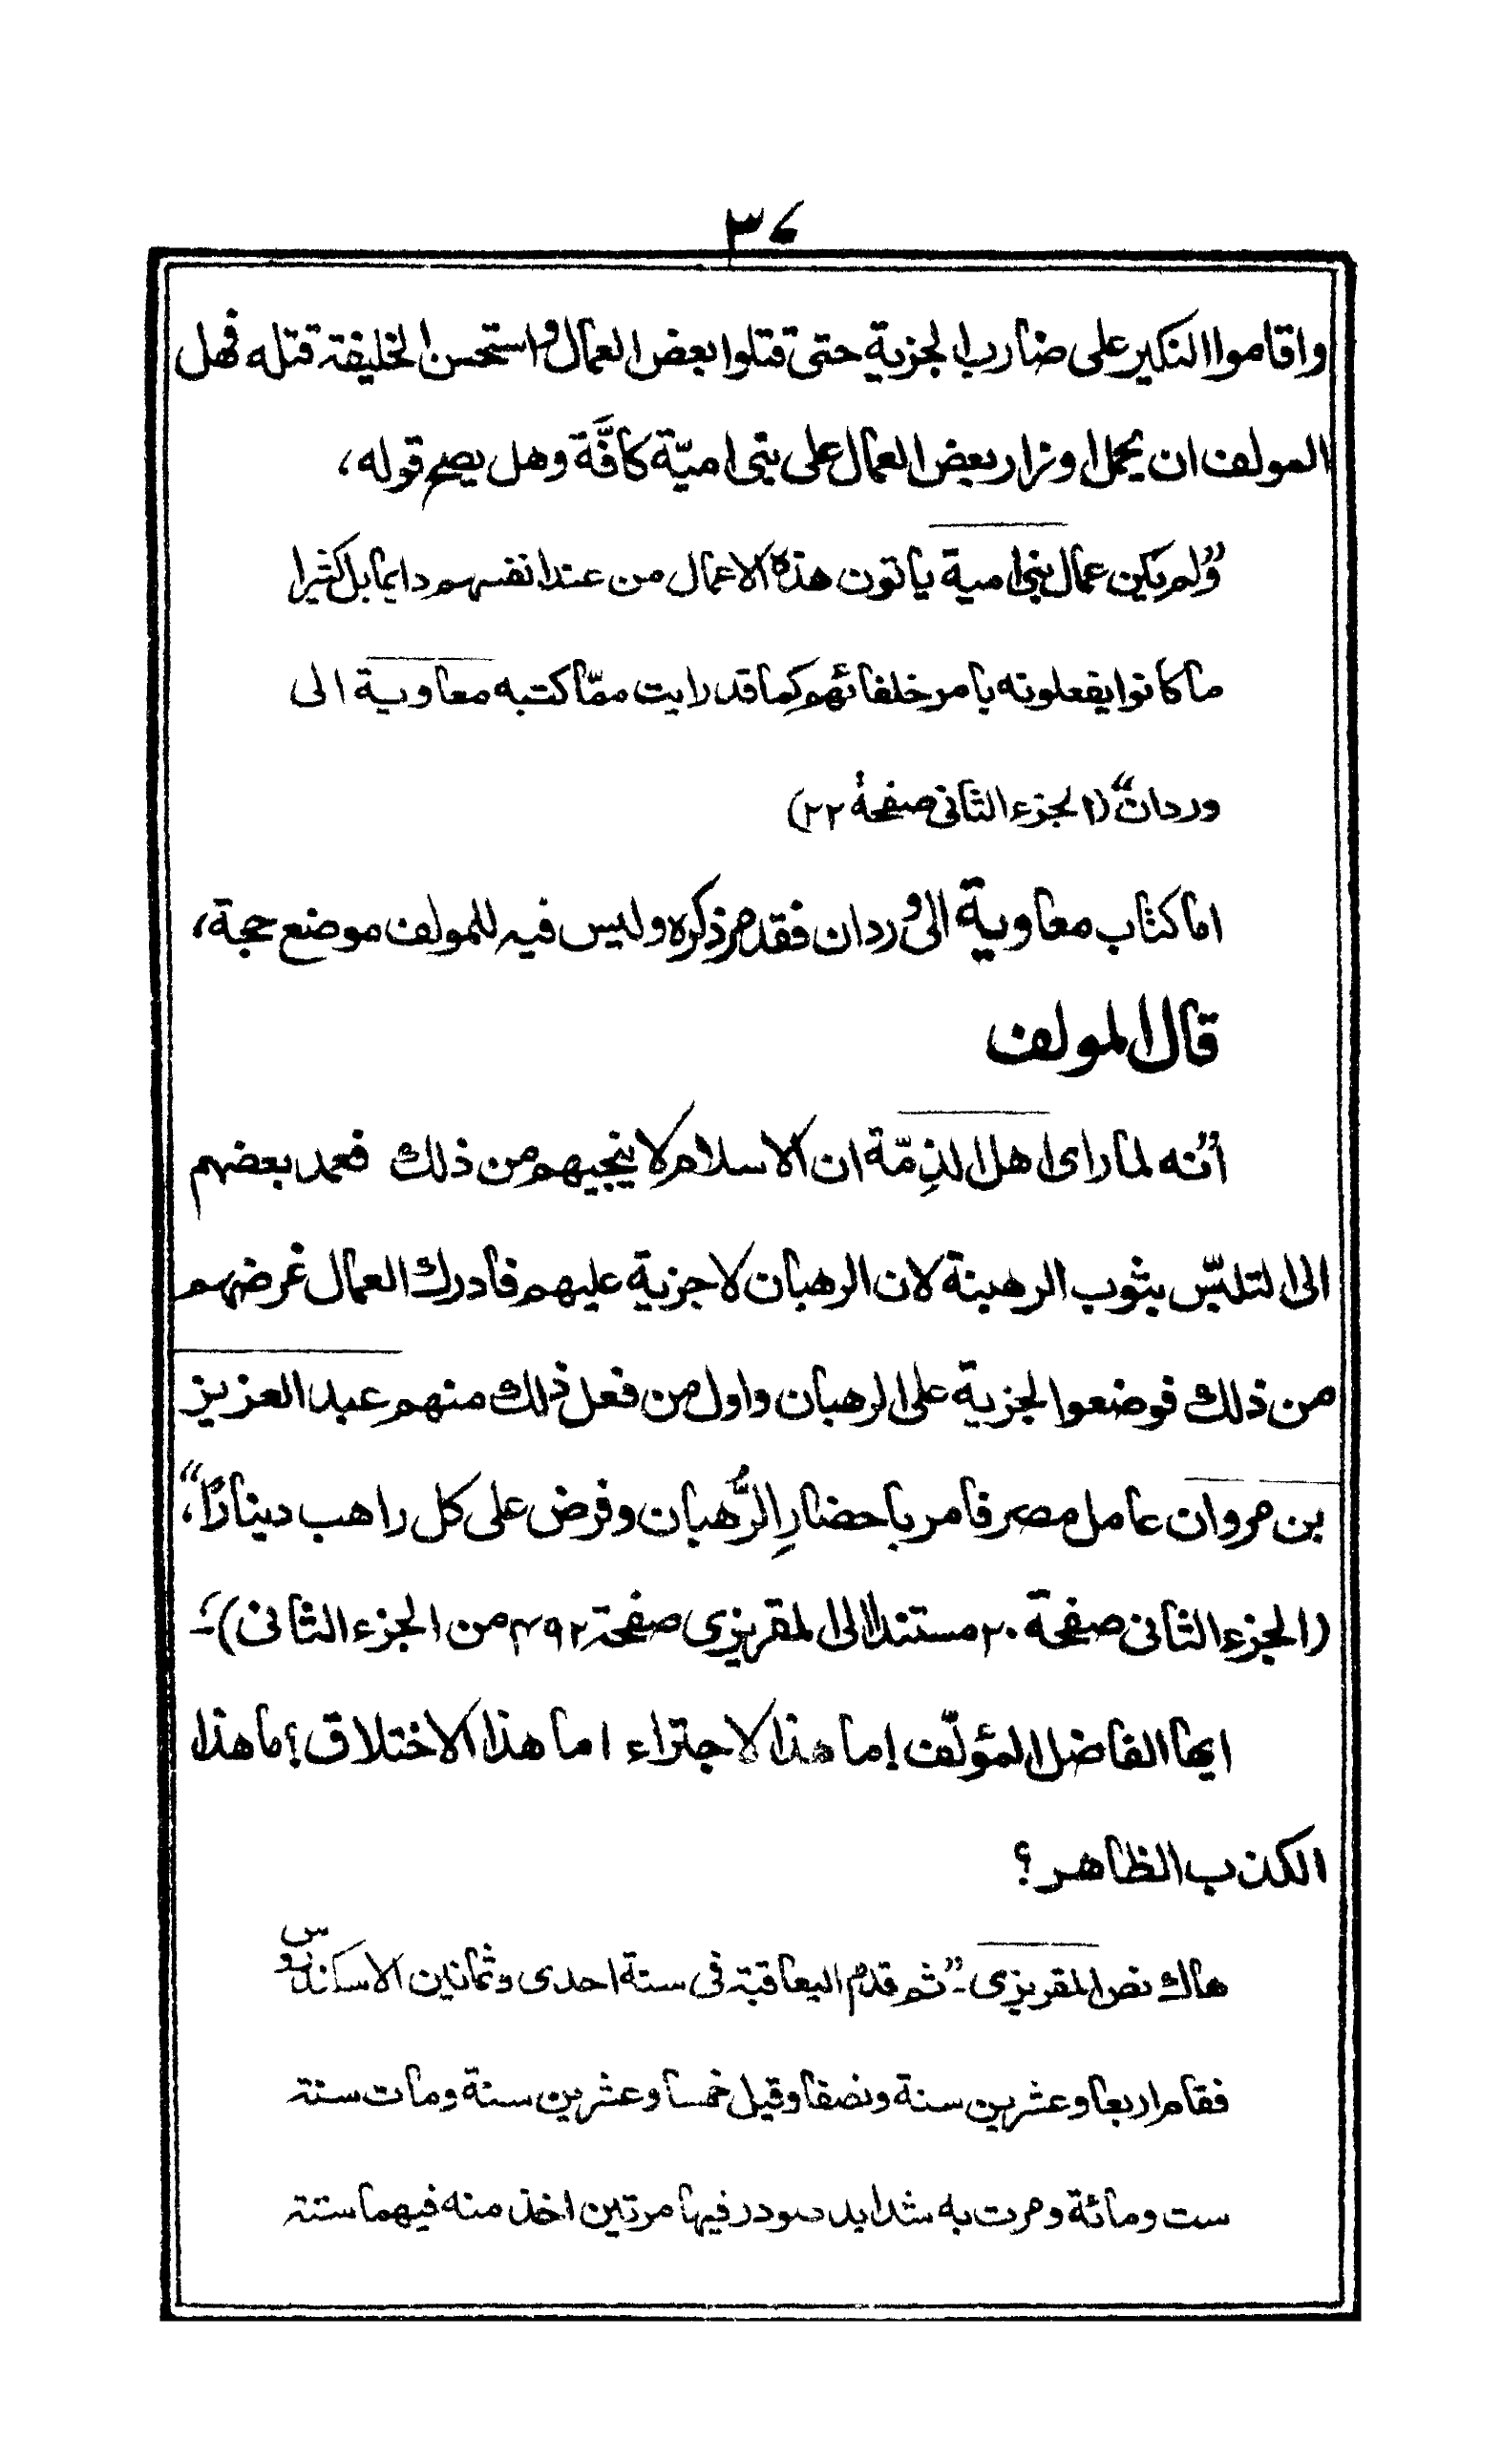 ٣٧
واقاموا النكير على ضارب الجزية حتى قتلوا بعض العمال واستحسن الخليفة قتله فهل
المولف ان يحمل اوزار بعض العمال على بنى اميّة كافَّة وهل يصح قوله،
”ولم يكن عمال بنى امية ياتون هذه الاعمال من عند انفسهم دايما بل كثيرا
ما كانوا يفعلونه بامر خلفائهم كما قد رايت ممّا كتبه معاوية الى
وردان“ (الجزء الثانى صفحة ٢٢)
اما كتاب معاوية الى وردان فقد مر ذكره وليس فيه للمولف موضع حجة،
قال المولف
”انه لما راى اهل الذِمّة ان الاسلام لا ينجيهم من ذلك فعمد بعضهم
الى التلبّس بثوب الرهبنة لان الرهبان لا جزية عليهم فادرك العمال غرضهم
من ذلك فوضعوا الجزية على الرهبان واول من فعل ذلك منهم عبد العزيز
بن مروان عامل مصر فامر باحضارِ الرُّهبان وفرض على كل راهب دينارًا“،
(الجزء الثانى صفحة ٢٠ مستندا الى المقريزى صفحة ٤٩٢ من الجزء الثانى)-
ايها الفاضل المؤلّف! ما هذا الاجتراء! ما هذا الاختلاق؟ ما هذا
الكذب الظاهر؟
هاك نص المقريزى-”ثم قدم اليعاقبة فى سنة احدى وثمانين الاسكندروس
فقام اربعا وعشرين سنة ونصفا وقيل خمسا وعشرين سنة ومات سنة
ست ومائة ومرت به شدايد صودر فيها مرتين اخذ منه فيهما ستة